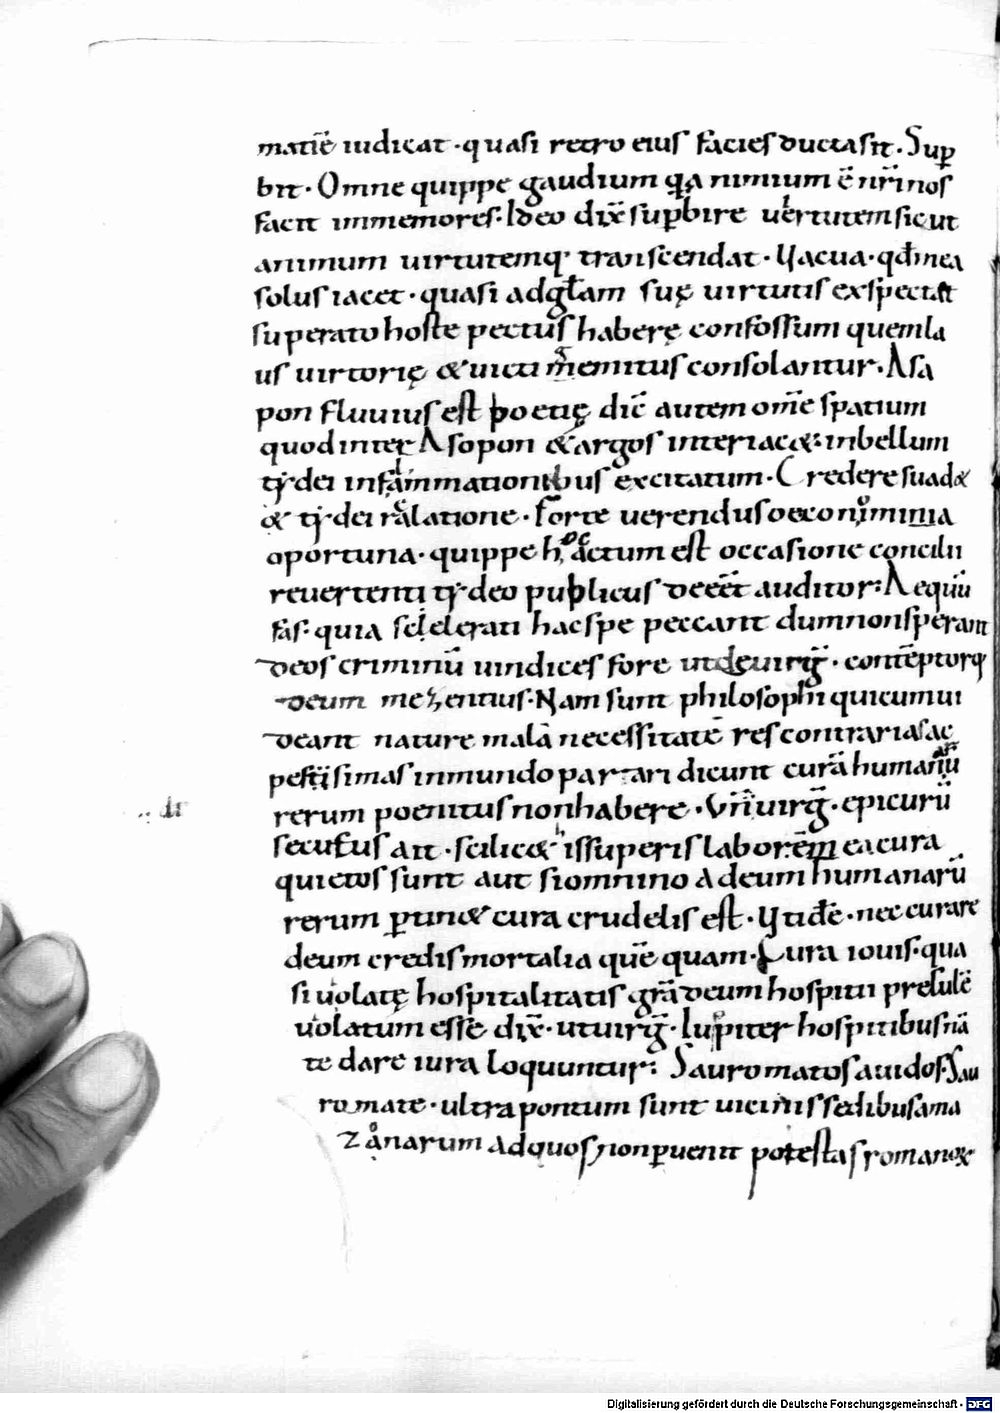 matiē iudicat · quasi retro eius facies ducta sit · Sup̄
bit · Omne quippe gaudium qđ nimium ē nr̄i nos
facit immemores · Ideo dix̄ sup̄bire uirtutem sic ut
animum uirtutemq· transcendat · Vacua · qđ in ea
solus iacet · quasi ad gl̄am suę uirtutis exspectat
superato hoste pectus haberę confossum quem la
us uictorię & uicti gemitus consolantur · Asa
pon fluuius est boetię dic̄ autem om̄e spatium
quod inter Asopon & argos interiac&: in bellum
tydei inflammationibus excitatum · Credere suad&
& tydei relatione · Forte uerendus oeconiminia
oportuna · quippe hoc actum est occasione concilii
reuertenti tydeo publicus deēēt auditor: Aequū
fas · quia scelerati hac spe peccant dum non sperant
deos criminū uindices fore ut de uirḡ · contēptorq·
deum mezentius · Nam sunt philosophi qui cum ui
deant nature mala necessitatē res contrarias ac
pestissimas in mundo partari dicunt curā humanarū
rerum poenitus non habere · Vn̄ uirḡ · epicurū
secutus ait · scilic& is superis labor ē · ea cura
quietos sunt aut si omnino ad eum humanarū
rerum p̄tin& cura crudelis est · Vt idē · nec curare
deum credis mortalia quē quam · Cura iouis · qua
si uiolatę hospitalitatis gr̄a deum hospitii presulē
uiolatum esse dix̄ · ut uirḡ · Iupiter hospitibus nā
te dare iura loquuntur: Sauromatos auidos · Sau
romate · ultra pontum sunt uicinis sedibus ama
zonarum ad quos non p̄uenit potestas romanor̄
Digitalisierung gefördert durch die Deutsche Forschungsgemeinschaft - DFG